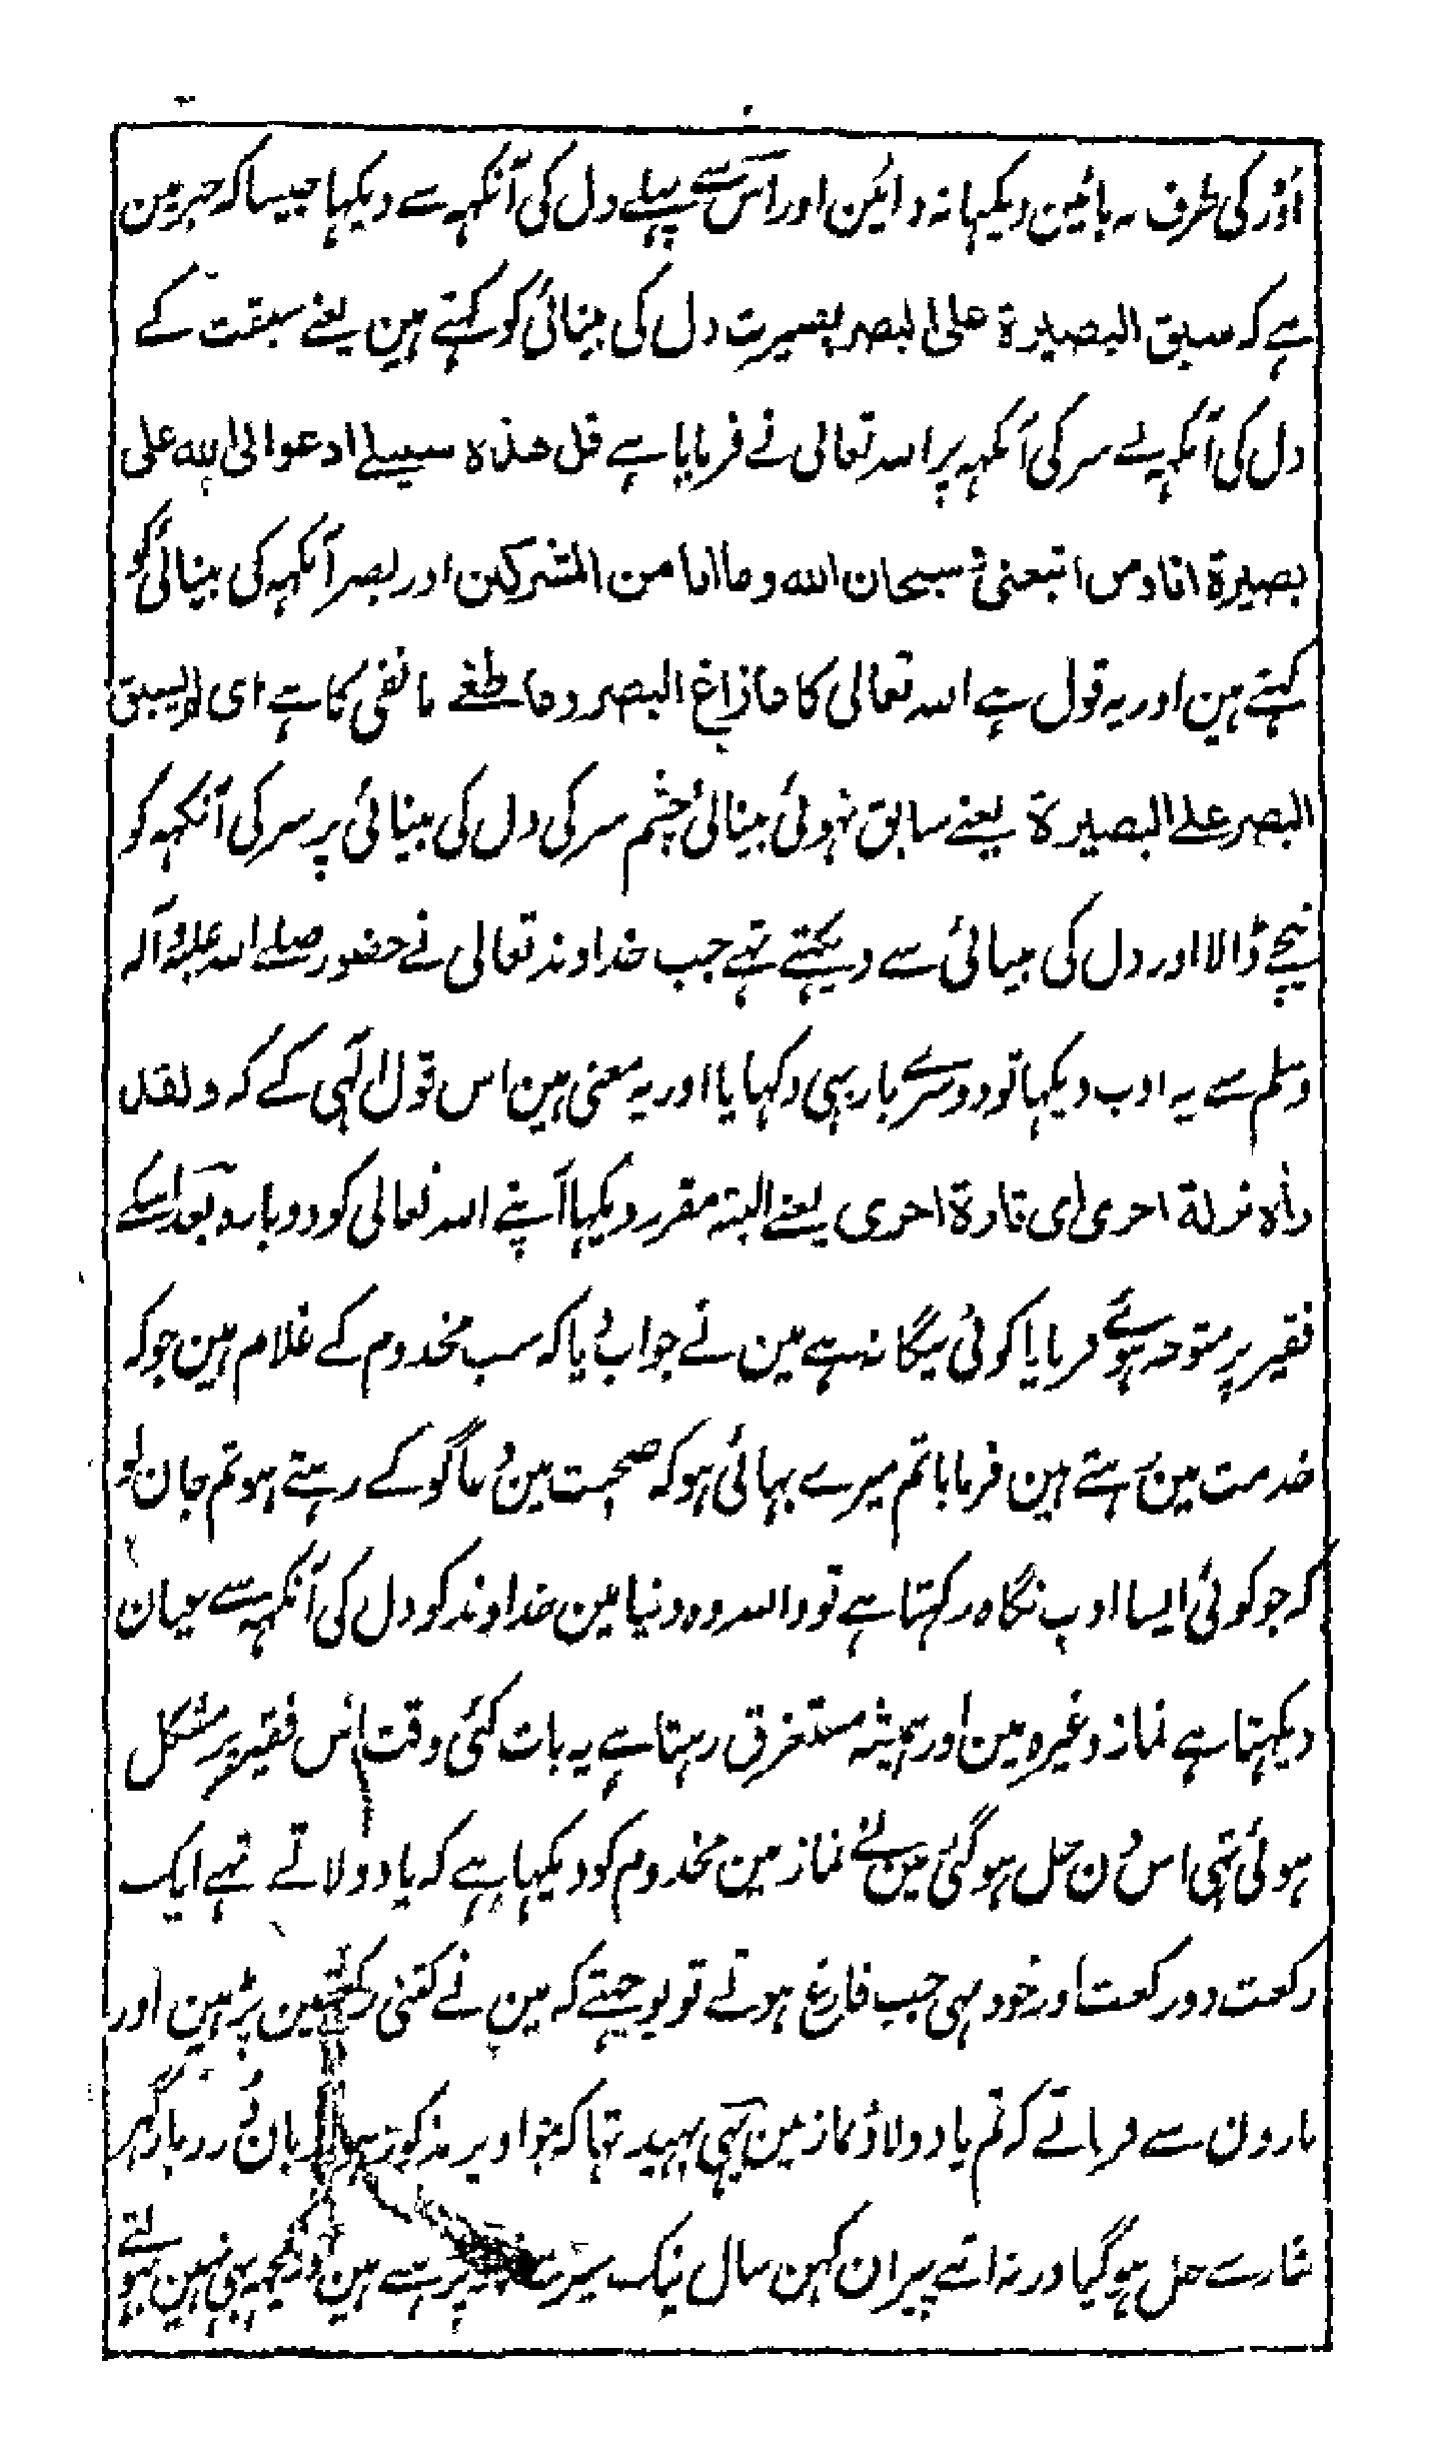 اوّر کی طرف نہ بائین دیکہا نہ دائین اور اُس سے پہلے دل کی آنکہہ سے دیکہا جیسا کہ خبر مین
ہے کہ سبق البصیرة علی البصر بصیرت دل کی بینائی کو کہتے ہین یعنے سبقت کے
دل کی آنکہہ نے سر کی آنکہہ پر اللہ تعالی نے فرمایا ہے قل هذه سبیلے ادعوا الی الله علی
بصیرة انا ومن اتبعنی سبحان الله وما انا من المشرکین اور بصر آنکہہ کی بینائی کو
کہتے ہین اور یہ قول ہے اللہ تعالی کا ما زاغ البصر وما طغے ما نفی کا ہے ای لم یسبق
البصر علے البصیرة یعنے سابق نہوئی بینائی چشم سر کی دل کی بینائی پر سر کی آنکہہ کو
نیچے ڈالا اور دل کی بینائی سے دیکہتے تہے جب خداوند تعالی نے حضور صلے اللہ علیہ وآلہ
وسلم سے یہ ادب دیکہا تو دوسرے بار بہی دکہایا اور یہ معنی ہین اس قول الٰہی کے کہ ولقد
راٰه نزلة اخری ای تارة اخری یعنے البتہ مقرر دیکہا آپنے اللہ تعالی کو دوبارہ بعد اسکے
فقیر پر متوجہ ہوئے فرمایا کوئی بیگانہ ہے مین نے جواب دیا کہ سب مخدوم کے غلام ہین جو کہ
خدمت مین رہتے ہین فرمایا تم میرے بہائی ہو کہ صحبت مین دعاگو کے رہتے ہو تم جان لو
کہ جو کوئی ایسا ادب نگاہ رکہتا ہے تو واللہ وہ دنیا مین خداوند کو دل کی آنکہہ سے عیان
دیکہتا ہے نماز وغیرہ مین اور ہمیشہ مستغرق رہتا ہے یہ بات کئی وقت اس فقیر پر مشکل
ہوئی تہی اس دن حل ہو گئی مین نے نماز مین مخدوم کو دیکہا ہے کہ یاد دولاتے تہے ایک
رکعت دو رکعت اور خود بہی جب فارغ ہوتے تو پوچہتے کہ مین نے کتنی رکعتین پڑہین اور
یارون سے فرماتے کہ تم یاد دولاؤ نماز مین یہی بہید تہا کہ جو اوپر مذکور ہوا زبان درر بار گہر
نثار سے حل ہو گیا ورنہ اتنے پیران کہن سال نیک سیرت پڑہتے ہین کہ نہین ہوتے